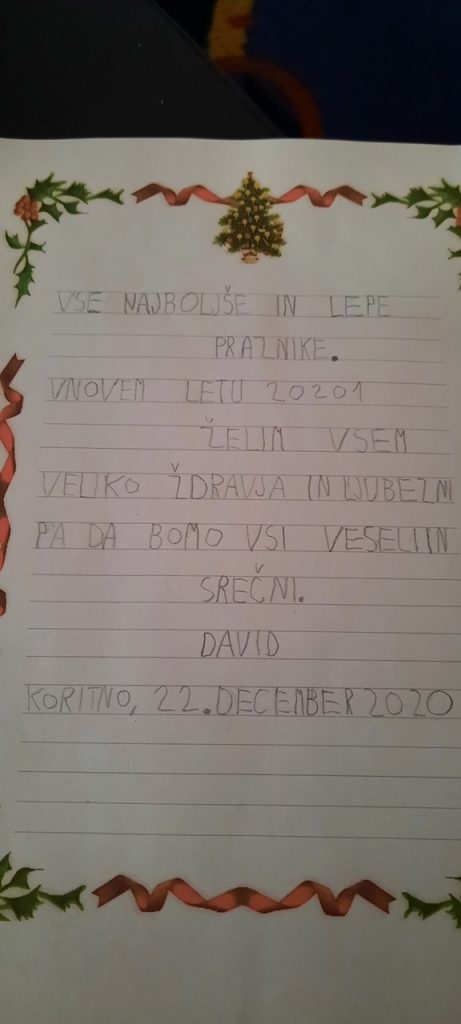 VSE NAJBOLJŠE IN LEPE
PRAZNIKE.
VNOVEM LETU 20201
ŽELIM VSEM
VELIKO ŽDRAVJA IN LJUBEZNI
PA DA BOMO VSI VESELIIN
SREČNI.
DAVID
KORITNO, 22. DECEMBER 2020